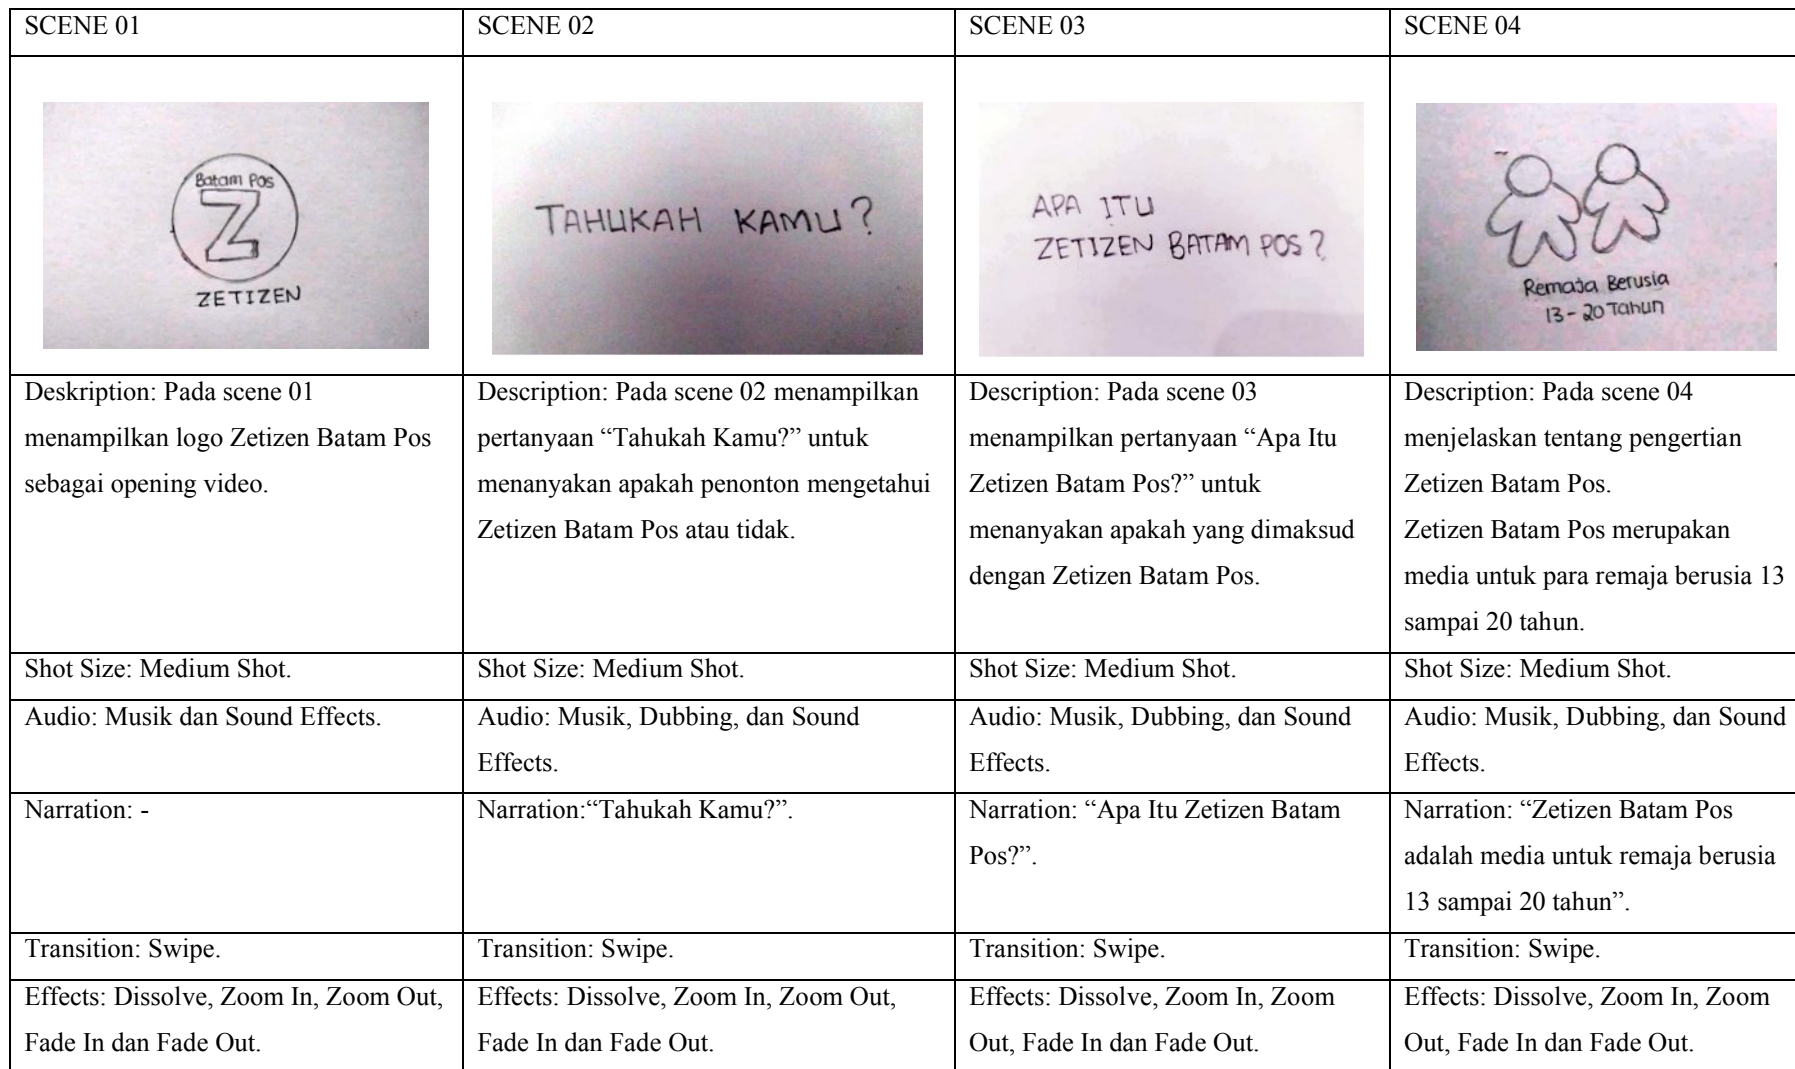 SCENE 01
SCENE 02
SCENE 03
SCENE 04
Batam Pos
Z
ZETIZEN
TAHUKAH KAMU?
APA ITU
ZETIZEN BATAM POS?
Remaja Berusia
13 - 20 Tahun
Deskription: Pada scene 01
menampilkan logo Zetizen Batam Pos
sebagai opening video.
Description: Pada scene 02 menampilkan
pertanyaan “Tahukah Kamu?” untuk
menanyakan apakah penonton mengetahui
Zetizen Batam Pos atau tidak.
Description: Pada scene 03
menampilkan pertanyaan “Apa Itu
Zetizen Batam Pos?” untuk
menanyakan apakah yang dimaksud
dengan Zetizen Batam Pos.
Description: Pada scene 04
menjelaskan tentang pengertian
Zetizen Batam Pos.
Zetizen Batam Pos merupakan
media untuk para remaja berusia 13
sampai 20 tahun.
Shot Size: Medium Shot.
Shot Size: Medium Shot.
Shot Size: Medium Shot.
Shot Size: Medium Shot.
Audio: Musik dan Sound Effects.
Audio: Musik, Dubbing, dan Sound
Effects.
Audio: Musik, Dubbing, dan Sound
Effects.
Audio: Musik, Dubbing, dan Sound
Effects.
Narration: -
Narration:“Tahukah Kamu?”.
Narration: “Apa Itu Zetizen Batam
Pos?”.
Narration: “Zetizen Batam Pos
adalah media untuk remaja berusia
13 sampai 20 tahun”.
Transition: Swipe.
Transition: Swipe.
Transition: Swipe.
Transition: Swipe.
Effects: Dissolve, Zoom In, Zoom Out,
Fade In dan Fade Out.
Effects: Dissolve, Zoom In, Zoom Out,
Fade In dan Fade Out.
Effects: Dissolve, Zoom In, Zoom
Out, Fade In dan Fade Out.
Effects: Dissolve, Zoom In, Zoom
Out, Fade In dan Fade Out.